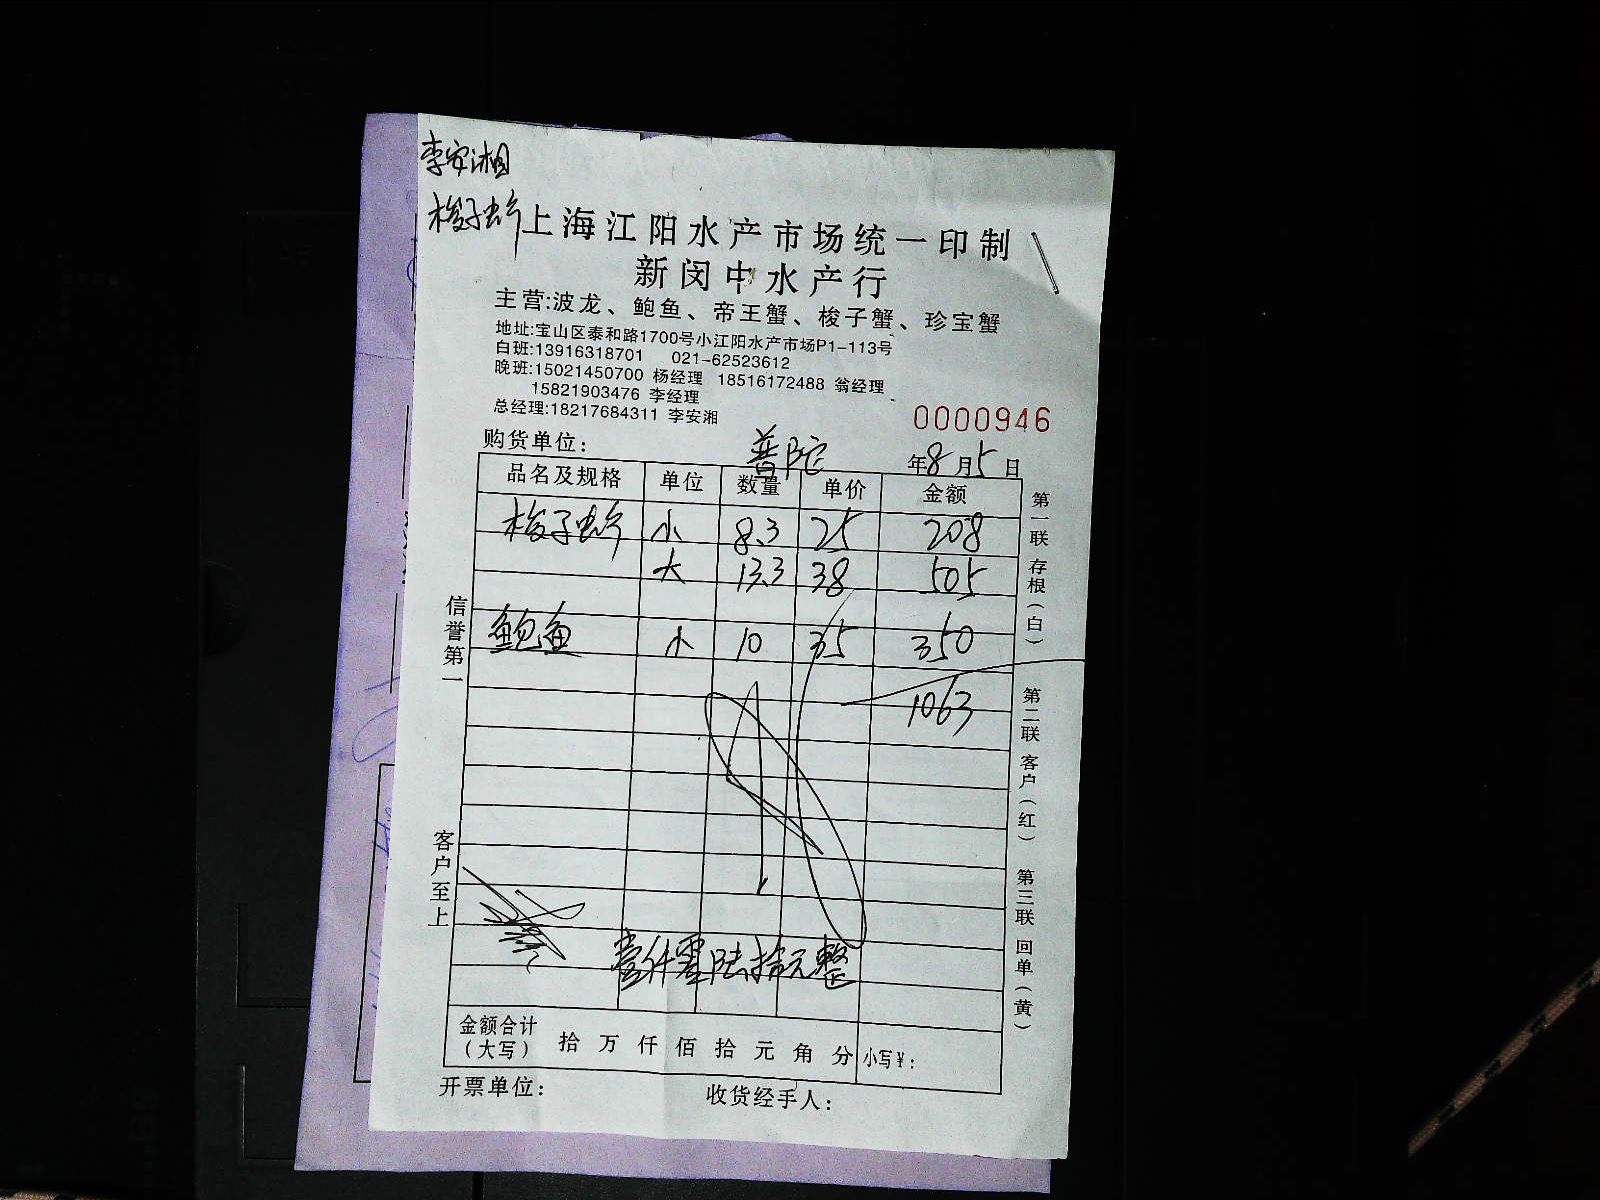 李安湘
梭子蟹
上海江阳水产市场统一印制
新闵中水产行
主营:波龙、鲍鱼、帝王蟹、梭子蟹、珍宝蟹
地址:宝山区泰和路1700号小江阳水产市场P1-113号
白班:13916318701 021-62523612
晚班:15021450700 杨经理 18516172488 翁经理
15821903476 李经理
总经理:18217684311 李安湘
0000946
购货单位: 普陀 年8月5日
品名及规格 单位 数量 单价 金额
梭子蟹 小 8.3 25 208
大 13.3 38 505
鲍鱼 小 10 35 350
1063
壹仟零陆拾元整
金额合计 拾 万 仟 佰 拾 元 角 分 小写¥:
(大写)
开票单位: 收货经手人:
信誉第一
客户至上
第一联 存根(白)
第二联 客户(红)
第三联 回单(黄)